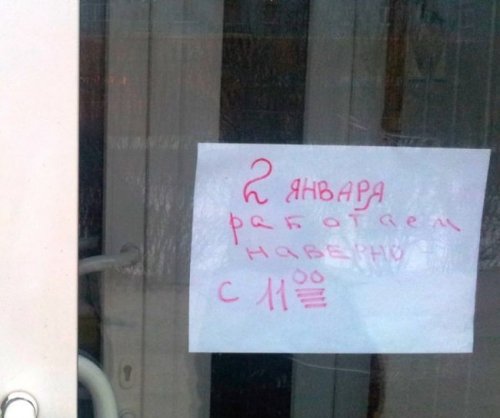 2 ЯНВАРЯ
работаем
НАВЕРНО
С 11⁰⁰